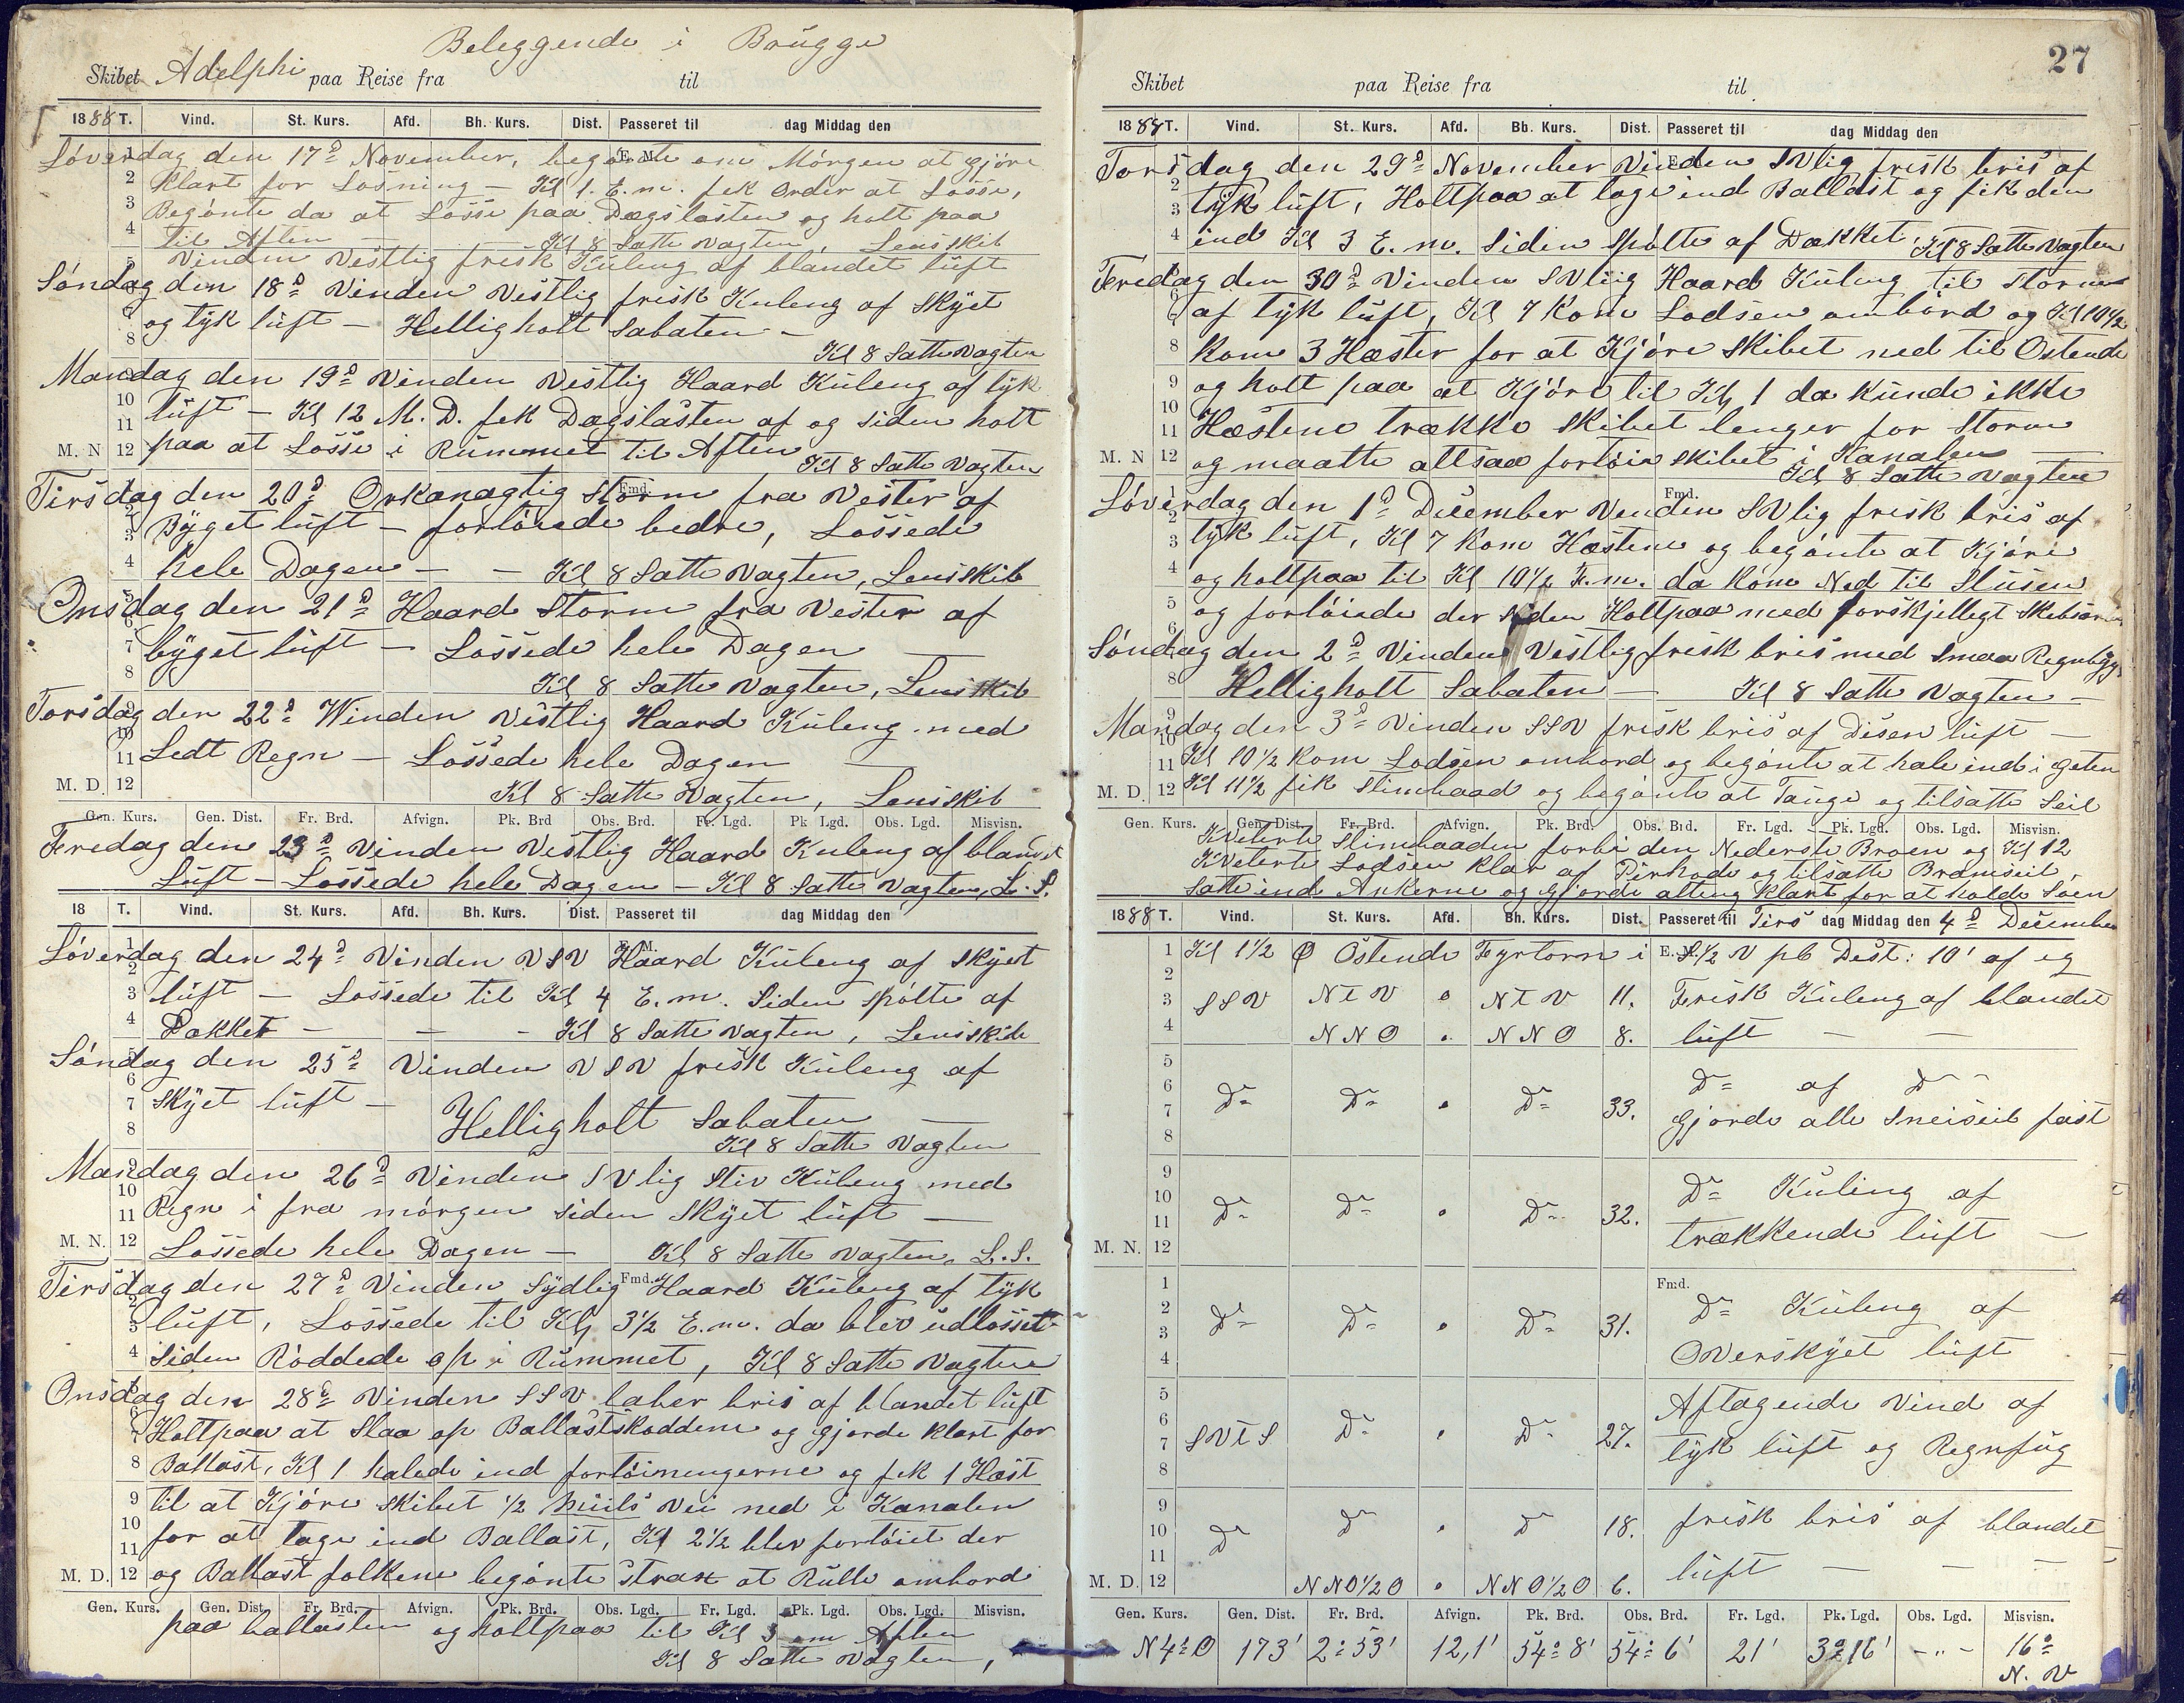 Beleggende i Brügge
Skibet Adelphi paa Reise fra til
1888 T. Vind. St. Kurs. Afd. Bh. Kurs. Dist. Passeret til dag Middag den
Løverdag den 17d November, begønte om Mórgen at gjøre
klart for Losning — Kl 1. E.m. fek Order at Losse,
Begønte da at Losse paa Dægslasten og holt paa
til Aften — Kl 8 Satte Vagten, Lens skib
Vinden Vestlig frisk Kuleng af blandet lúft
Søndag den 18d Vinden Vestlig frisk Kuleng af Skÿet
og tÿk lúft — Hellig holt Sabaten —
Kl 8 Satte Vagten
Mandag den 19d Vinden Vestlig Haard Kúleng af tÿk
lúft — Kl 12 M.D. fek Dagslasten af og siden holt
M. N 12 paa at Losse i Rúmmet til Aften Kl 8 Satte Vagten
Tirsdag den 20d Orkanagtig Storm fra Vester af
Bÿget lúft — fortøiede bedre, Lossede
hele Dagen — — Kl 8 Satte Vagten, Lens skib
Onsdag den 21d Haard Storm fra Vester af
bÿget lúft — Lossede hele Dagen —
Kl 8 Satte Vagten, Lens skib
Torsdag den 22d Winden Vestlig Haard Kúleng med
Ledt Regn — Lossede hele Dagen —
M. D. 12 Kl 8 Satte Vagten, Lens skib
Gen. Kurs. Gen. Dist. Fr. Brd. Afvign. Pk. Brd Obs. Brd. Fr. Lgd. Pk Lgd. Obs. Lgd. Misvisn.
Feredag den 23d Vinden Vestlig Haard Kuleng af blandet
Lúft — Lossede hele Dagen — Kl 8 Satte Vagten, L. S.
18 T. Vind. St. Kurs. Afd. Bh. Kurs. Dist. Passeret til dag Middag den
Løverdag den 24d Vinden VSV Haard Kúleng af Skÿet
lúft — Lossede til Kl 4 E.m. Siden spólte af
Dækket — — — Kl 8 Satte Vagten, Lens skib
Søndag den 25d Vinden VSV frisk Kúleng af
Skÿet lúft — Hellig holt Sabaten —
Kl 8 Satte Vagten
Mandag den 26d Vinden SVlig Stiv Kúleng med
Regn i fra mórgen siden Skÿet lúft —
M. N. 12 Lossede hele Dagen — Kl 8 Satte Vagten. L. S.
Tirsdag den 27d Vinden Sÿdlig Haard Kúleng af tÿk
lúft, Lossede til Kl 3½ E.m. da blev údlosset
siden Roddede op i Rúmmet, Kl 8 Satte Vagten
Onsdag den 28d Vinden SSV laber bris af blandet lúft
Holt paa at Slaa op Ballastskoddene og gjorde klart for
Ballast, Kl 1 halede ind fortóinengerne og fek 1 Hæst
til at Kjóre skibet ½ miils Vei ned i Kanalen
for at tage ind Ballast, Kl 2½ blev fortóiet der
M. D. 12 og Ballast folkene begónte strax at Rúlle ombord
Gen. Kurs. Gen. Dist. Fr. Brd. Afvign. Pk. Brd. Obs. Lgd. Fr. Lgd. Pk. Lgd. Obs. Lgd. Misvisn.
paa ballasten og holt paa til Kl 5 om Aften
Kl 8 Satte Vagten,
27
Skibet paa Reise fra til
1888 T. Vind. St. Kurs. Afd. Bh. Kurs. Dist. Passeret til dag Middag den
Torsdag den 29d November Vinden SVlig frisk bris af
tÿk lúft, Holt paa at tage ind Ballast og fik den
ind Kl 3 E.m. Siden spólte af Dækket, Kl 8 Satte Vagten
Feredag den 30d Vinden SVliig Haard Kúleng til Storm
af tÿk lúft, Kl 7 Kom Lodsen ombórd og Kl 10½
Kom 3 Hæster for at Kjóre Skibet ned til Ostende
og holt paa at Kjóre til Kl 1 da kúnde ikke
Hæstene trække Skibet lenger for Storm
M. N 12 og maatte altsaa fortóie skibet i Kanalen —
Kl 8 Satte Vagten
Løverdag den 1d December Venden SVlig frisk bris af
tÿk lúft, Kl 7 kom Hæstene og begónte at Kjóre
og holt paa til Kl 10½ F.m. da kom Ned til Slúsen
og fortóiede der siden Holt paa med forskjellegt Skibsar
Søndag den 2d Vinden Vestlig frisk bris med Smaa Regnbÿg
Hellig holt Sabaten — Kl 8 Satte Vagten —
Mandag den 3d Vinden SSV frisk bris af Disen lúft —
Kl 10½ kom Lodsen ombord og begónte at hale ind i geten
M. D. 12 Kl 11½ fik Stimbaad og begónte at Taúge og tilsatte Seil
Gen. Kurs. Gen. Dist. Fr. Brd. Afvign. Pk. Brd. Obs. Brd. Fr. Lgd. Pk. Lgd. Obs. Lgd. Misvisn.
Kveterte Stimbaaden forbi den Nederste Broen og Kl 12
Kveterte Lodsen klar af Pirhode og tilsatte Bramseil,
Satte ind Ankerne og gjorde alting klart for at holde Søen
1888 T. Vind. St. Kurs. Afd. Bh. Kurs. Dist. Passeret til Tirs dag Middag den 4d December
1 Kl 1½ Ostende Fyrtorn i S½V pC Dest: 10' af eg
3 SSV NtV NtV 11. Frisk Kúleng af blandet
4 NNO NNO 8. lúft — —
D= af D
D= D= D= 33. gjorde alle Sneiseil fast
D= Kúling af
D= D= D= 32. trækkende lúft —
M. N. 12
Fmd.
D= Kúleng af
D= D= D= 31. Overskÿet lúft
Aftagende Vind af
SVtS D= D= 27. tÿk lúft og Regnfúg
D= D= D= 18. frisk bris af blandet
lúft — — —
M. D. 12 NNO½O NNO½O 6.
Gen. Kurs. Gen. Dist. Fr. Brd. Afvign. Pk. Brd. Obs. Brd. Fr. Lgd. Pk. Lgd. Obs. Lgd. Misvisn.
N4°O 173' 2°53' 12,1' 54°8' 54°6' 21' 3°16' -"- 16°
N. V